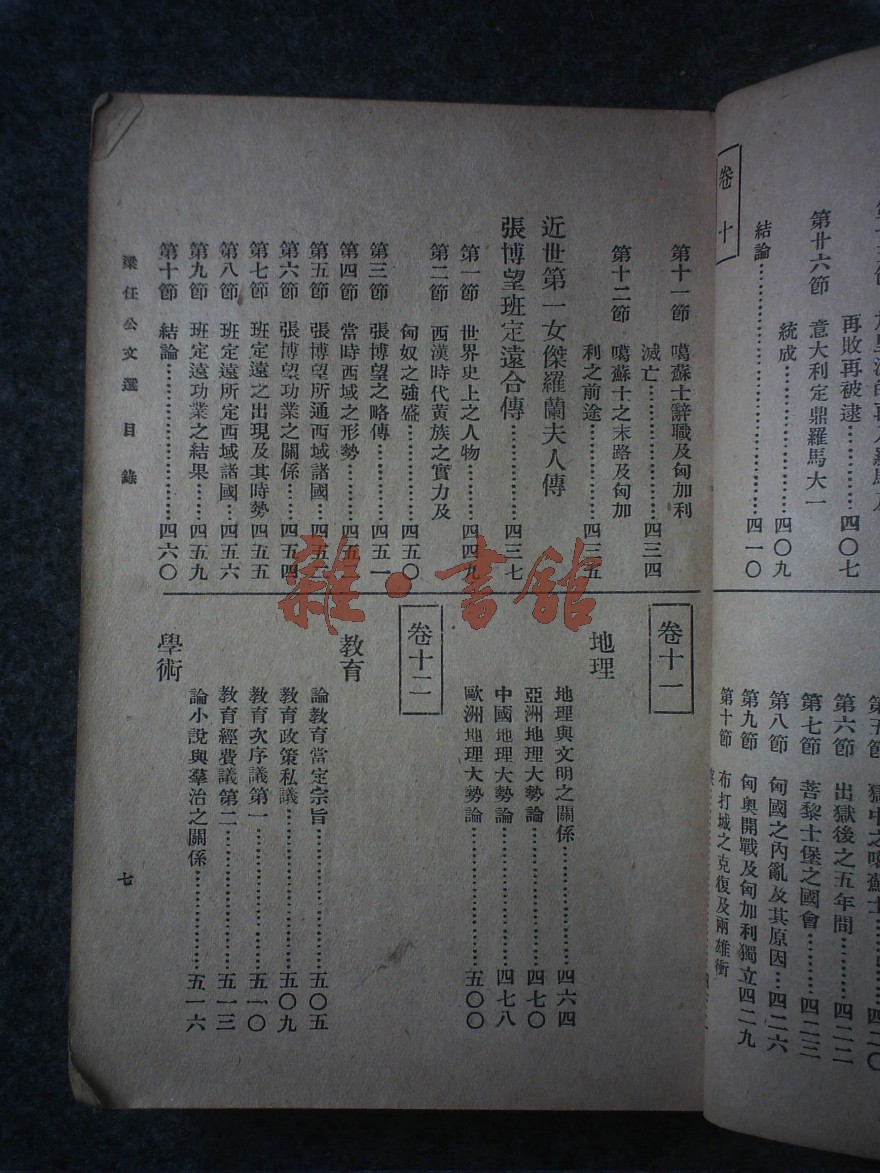 再敗再被逮………四〇七
第廿六節 意大利定鼎羅馬大一
統成………四〇九
結論………四一〇
卷十
獄中之噶蘇士………四二〇
第六節 出獄後之五年間…四二二
第七節 菩黎士堡之國會………四二三
第八節 匈國之內亂及其原因…四二六
第九節 匈奧開戰及匈加利獨立四二九
第十節 布打城之克復及兩雄衝
第十一節 噶蘇士辭職及匈加利
滅亡………四三四
第十二節 噶蘇士之末路及匈加
利之前途………四三五
近世第一女傑羅蘭夫人傳
張博望班定遠合傳………四三七
第一節 世界史上之人物………四四九
第二節 西漢時代黃族之實力及
匈奴之強盛………四五〇
第三節 張博望之略傳………四五一
第四節 當時西域之形勢………四五
第五節 張博望所通西域諸國…四五
第六節 張博望功業之關係……四五四
第七節 班定遠之出現及其時勢 四五五
第八節 班定遠所定西域諸國…四五六
第九節 班定遠功業之結果……四五九
第十節 結論………四六〇
卷十一
地理
地理與文明之關係………四六四
亞洲地理大勢論………四七〇
中國地理大勢論………四七八
歐洲地理大勢論………五〇〇
卷十二
教育
論教育當定宗旨………五〇五
教育政策私議………五〇九
教育次序議第一………五一〇
教育經費議第二………五一三
學術
論小說與羣治之關係………五一六
梁任公文選 目錄
七
雜·書館